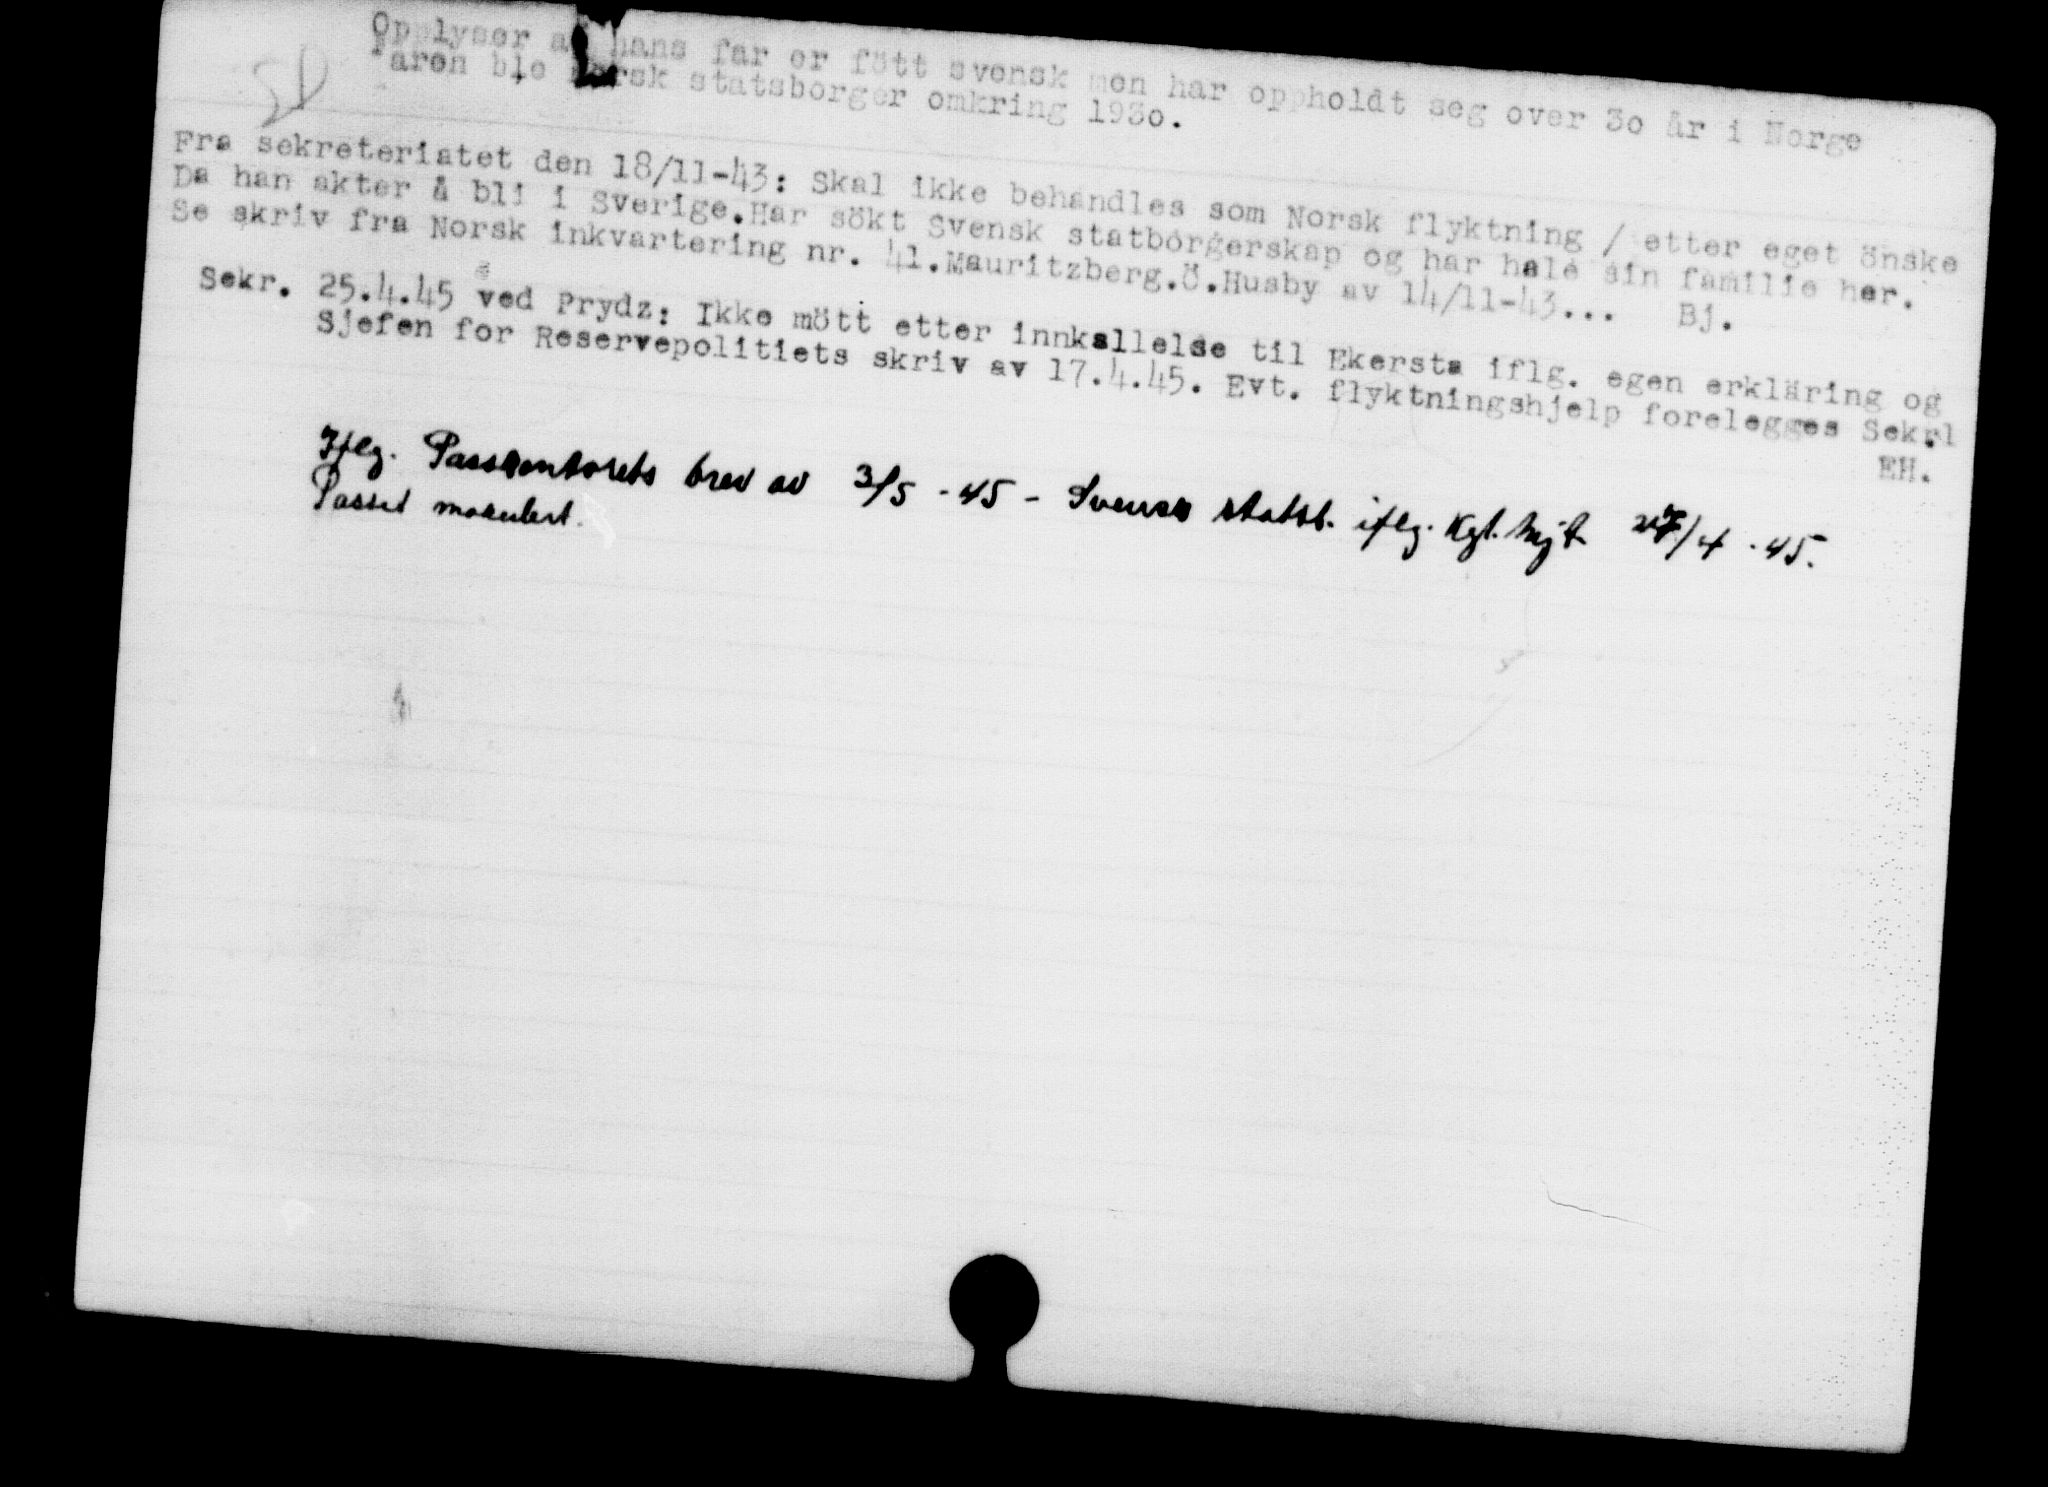 Opplyser at hans far er fött svensk men har oppholdt seg over 3o år i Norge
Faren ble norsk statsborger omkring 193o.
Fra sekreteriatet den 18/11-43: Skal ikke behandles som Norsk flyktning / etter eget önske
Da han akter å bli i Sverige.Har sökt Svensk statborgerskap og har hele sin familie her.
Se skriv fra Norsk inkvartering nr. 41.Mauritzberg.Ö.Husby av 14/11-43... Bj.
Sekr. 25.4.45 ved Prydz: Ikke mött etter innkallelse til Ekersta iflg. egen erkläring og
Sjefen for Reservepolitiets skriv av 17.4.45. Evt. flyktningshjelp forelegges Sekr.
EH.
Iflg. Passkontorets brev av 3/5 - 45 - Svensk statsb. iflg. Kgl. Mjt 27/4 - 45.
Passet makulert.